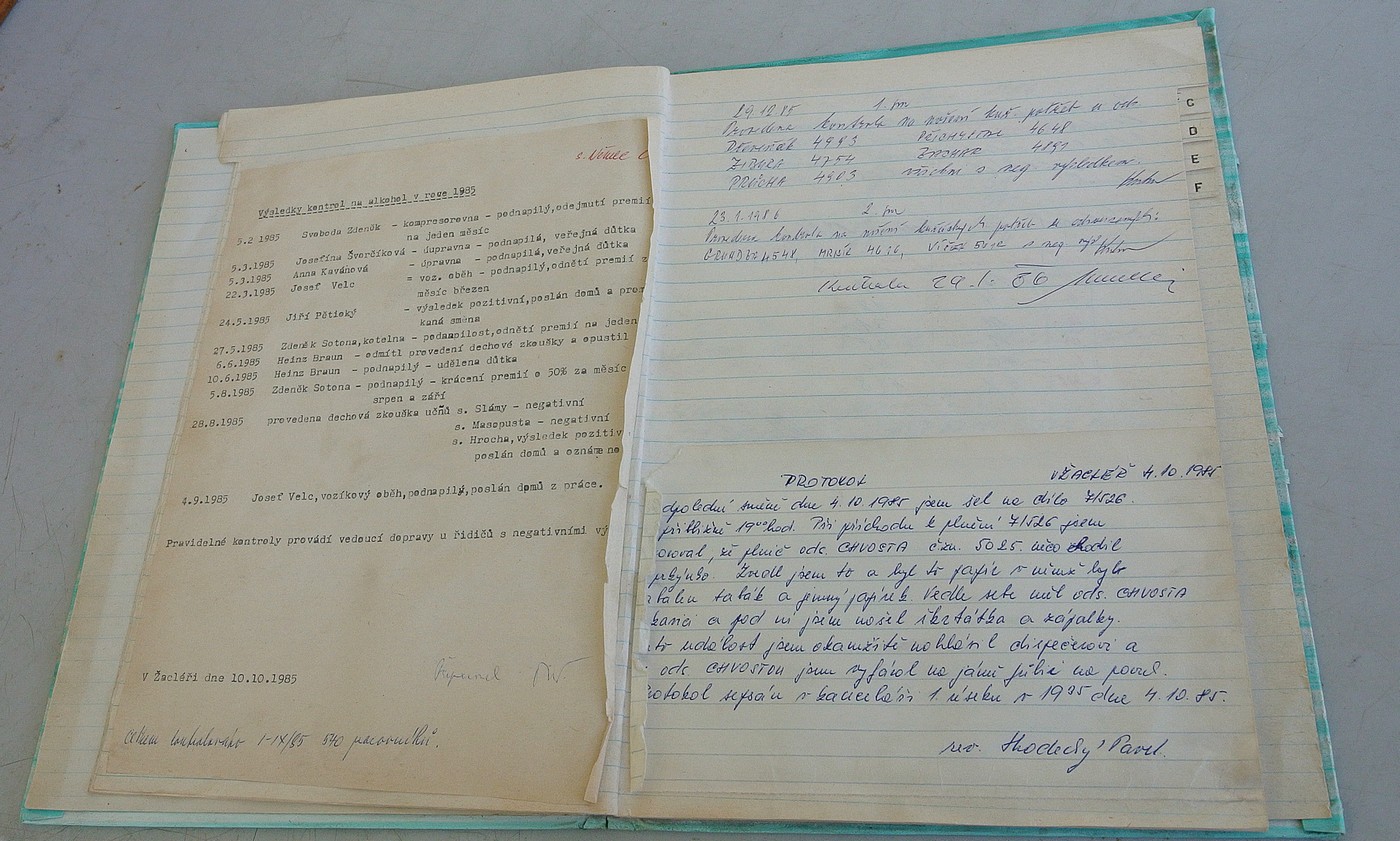 s. Němec
Výsledky kontrol na alkohol v roce 1985
5.2 1985 Svoboda Zdeněk - kompresorovna - podnapilý,odejmutí premií
na jeden měsíc
5.3.1985 Josefína Švorčíková - úpravna - podnapilá, veřejná důtka
5.3.1985 Anna Kavánová - úpravna - podnapilá,veřejná důtka
22.3.1985 Josef Velc = voz. oběh - podnapilý,odnětí premií z
měsíc březen
24.5.1985 Jiří Pětioký - výsledek pozitivní,poslán domů a prom
kaná směna
27.5.1985 Zdeněk Sotona,kotelna - podnapilost,odnětí premií na jeden
6.6.1985 Heinz Braun - odmítl provedení dechové zkoušky a opustil
10.6.1985 Heinz Braun - podnapilý - udělena důtka
5.8.1985 Zdeněk Sotona - podnapilý - krácení premií o 50% za měsíc
srpen a září
28.8.1985 provedena dechová zkouška učňů s. Slámy - negativní
s. Masopusta - negativní
s. Hrocha,výsledek pozitiv
poslán domů a oznámeno
4.9.1985 Josef Velc,vozíkový oběh,podnapilý,poslán domů z práce.
Pravidelné kontroly provádí vedoucí dopravy u řidičů s negativními vý
V Žacléři dne 10.10.1985
Celkem kontrolováno I-IX/85 540 pracovníků.
29.12.85 1. sm
Provedena kontrola na nošení kuř. potřeb u
4993 4648
4754 4891
PRŮCHA 4903 všichni s neg výsledkem.
23.1.1986 2. sm
Provedena kontrola na nošení kuřáckých potřeb
4548, 4626, s neg
Kontrola 29.1.86
C
D
E
F
PROTOKOL V ŽACLÉŘI 4.10.1985
dpolední směně dne 4.10.1985 jsem šel na dílo 7/526.
přibližně 19⁰⁰ hod. Při příchodu k plnění 7/526 jsem
oroval, že plnič ods. CHVOSTA čzn. 5025. něco shodil
Zvedl jsem to a byl to papír v němž bylo
tabák a jemný papírek. Vedle sebe měl ods. CHVOSTA
a pod ní jsem našel škrtátka a zápalky.
to událost jsem okamžitě nahlásil dispečerovi a
ods. CHVOSTOU jsem vyfáral na jámě Julie na povrch.
rotokol sepsán v kanceláři 1. úseku v 19²⁵ dne 4.10.85.
rev. Hodecký Pavel.